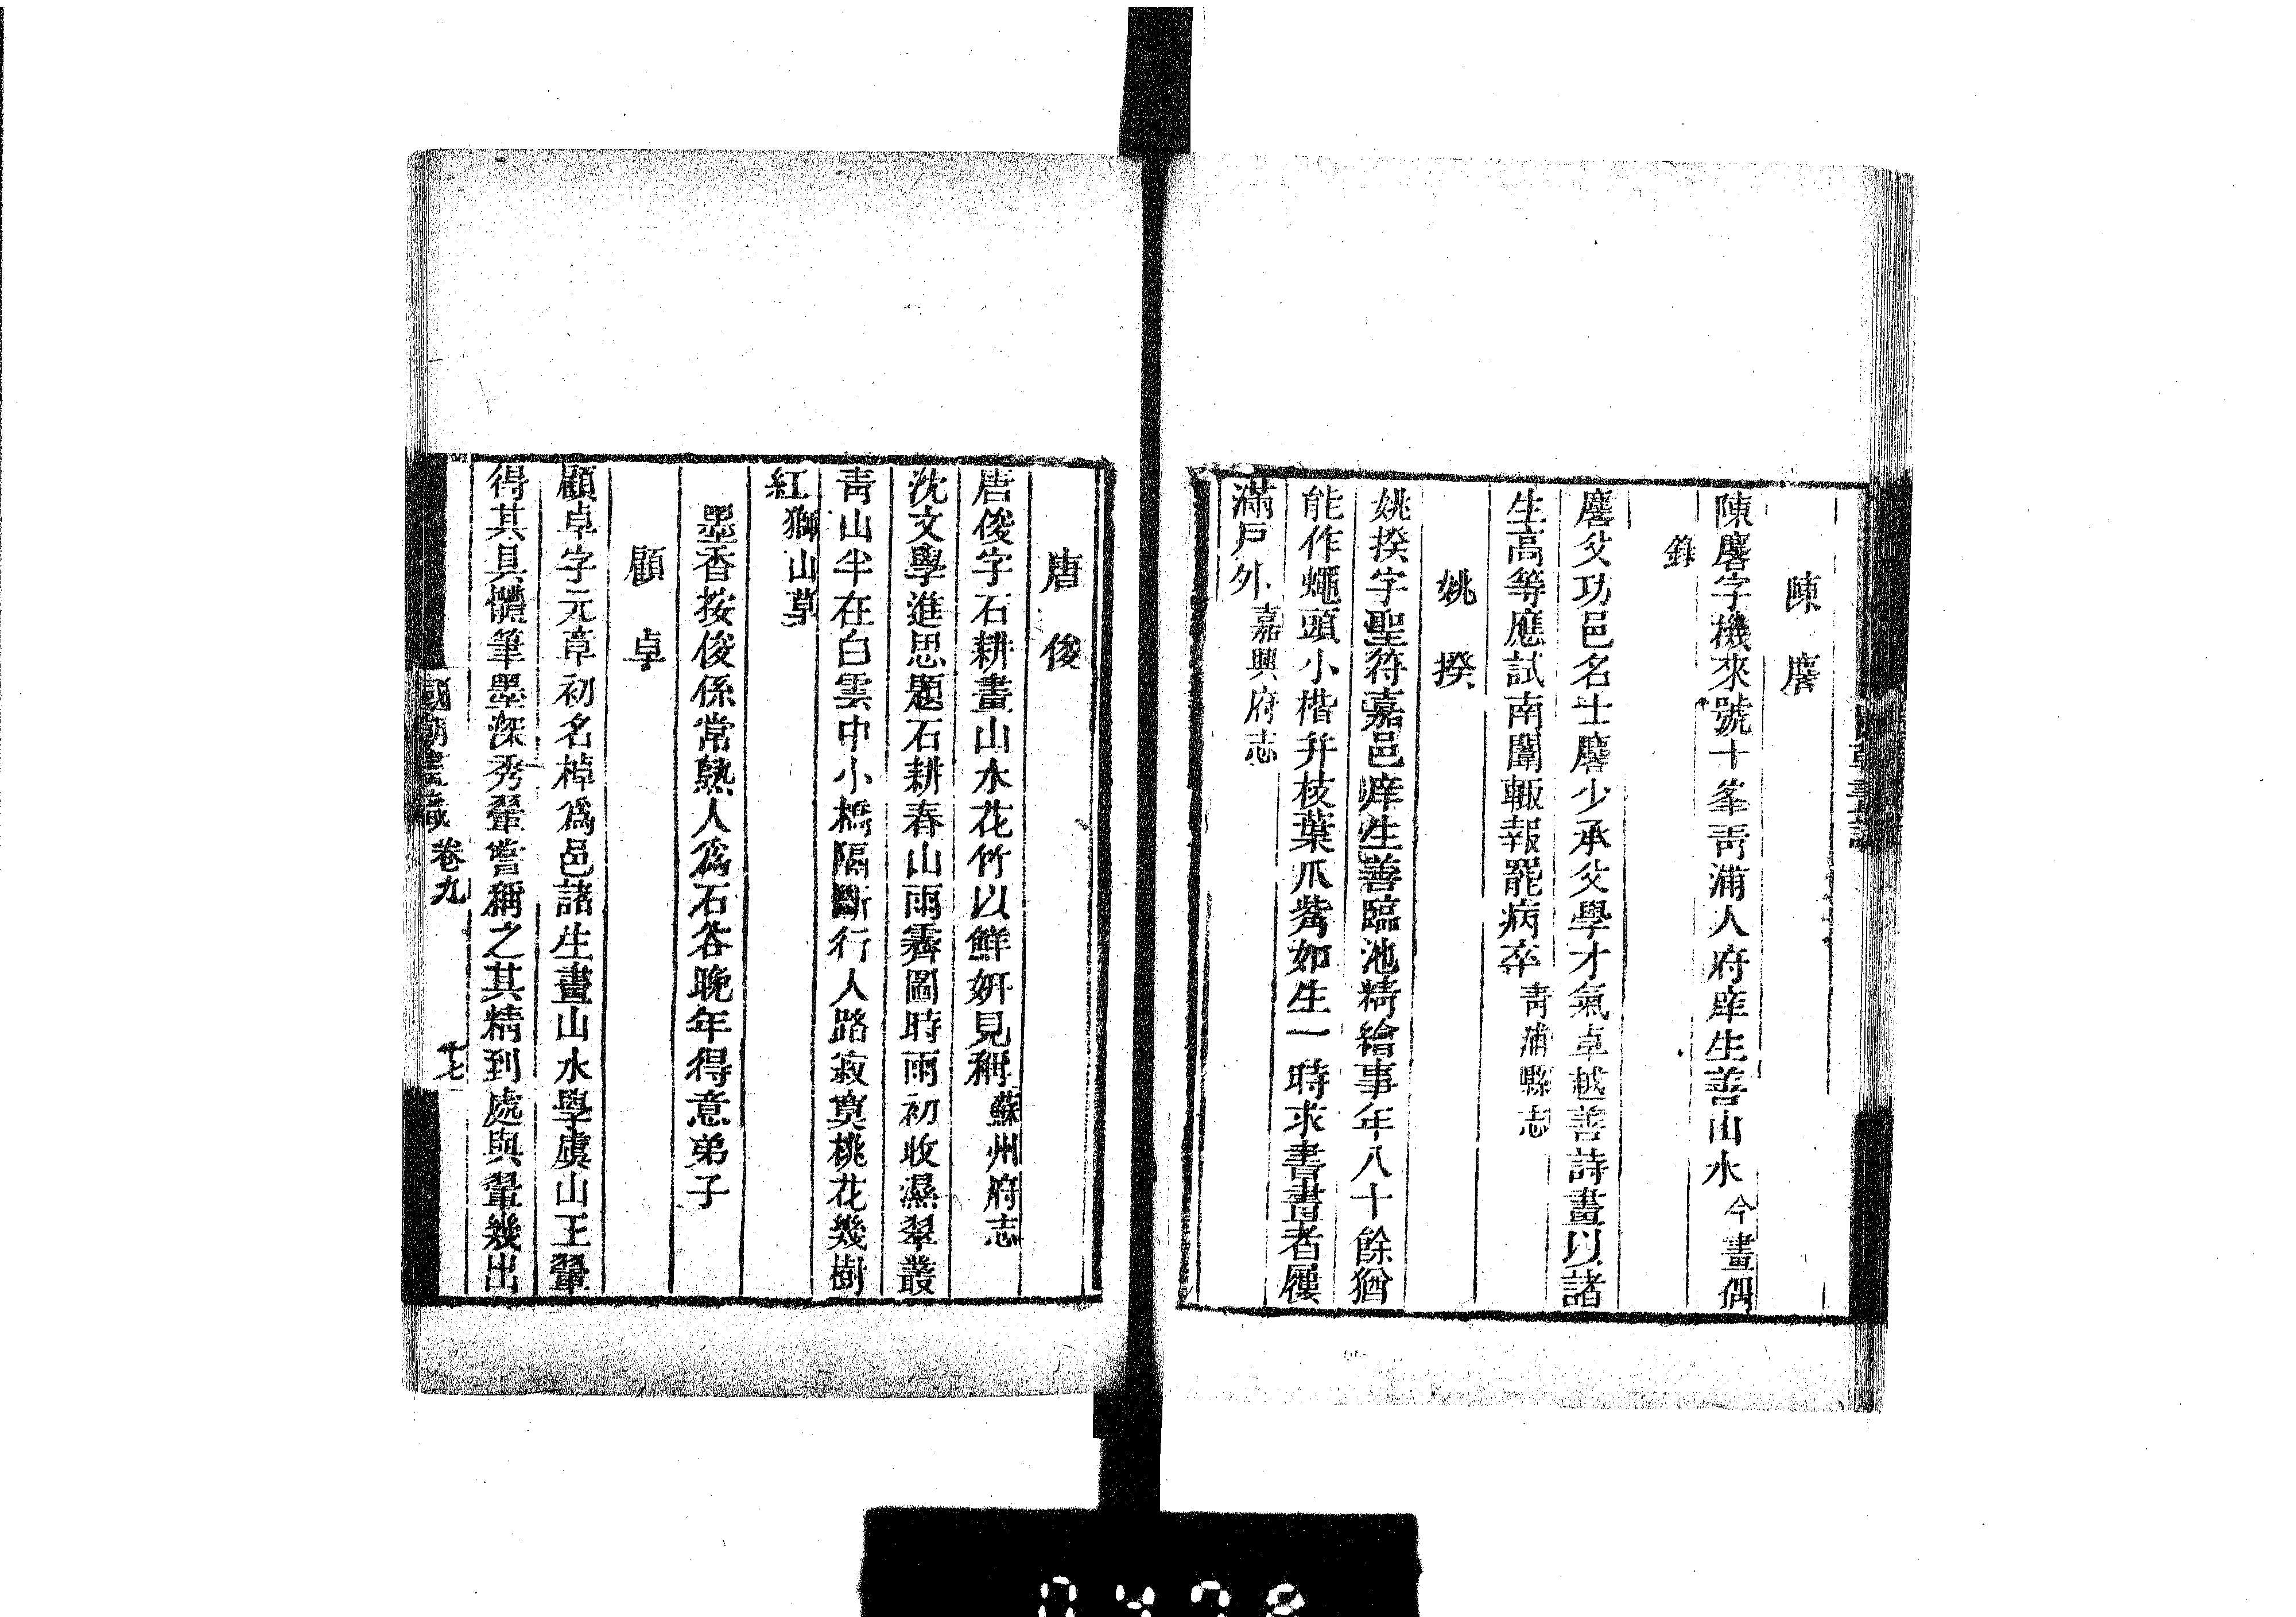 陳麐
陳麐字機來號十峯靑浦人府庠生善山水今畫偶
錄
麐父功邑名士麐少承父學才氣卓越善詩畫以諸
生高等應試南闈輒報罷病卒靑浦縣志
姚揆
姚揆字聖符嘉邑庠生善臨池精繪事年八十餘猶
能作蠅頭小楷幷枝葉爪觜如生一時求書畫者屨
滿戶外嘉興府志
唐俊
唐俊字石耕畫山水花竹以鮮妍見稱蘇州府志
沈文學進思題石耕春山雨霽圖時雨初收濕翠叢
靑山半在白雲中小橋隔斷行人路寂寞桃花幾樹
紅獅山草
墨香按俊係常熟人爲石谷晚年得意弟子
顧卓
顧卓字元章初名棹爲邑諸生畫山水學虞山王翬
得其具體筆墨深秀翬嘗稱之其精到處與翬幾出
國朝畫識 卷九 十七